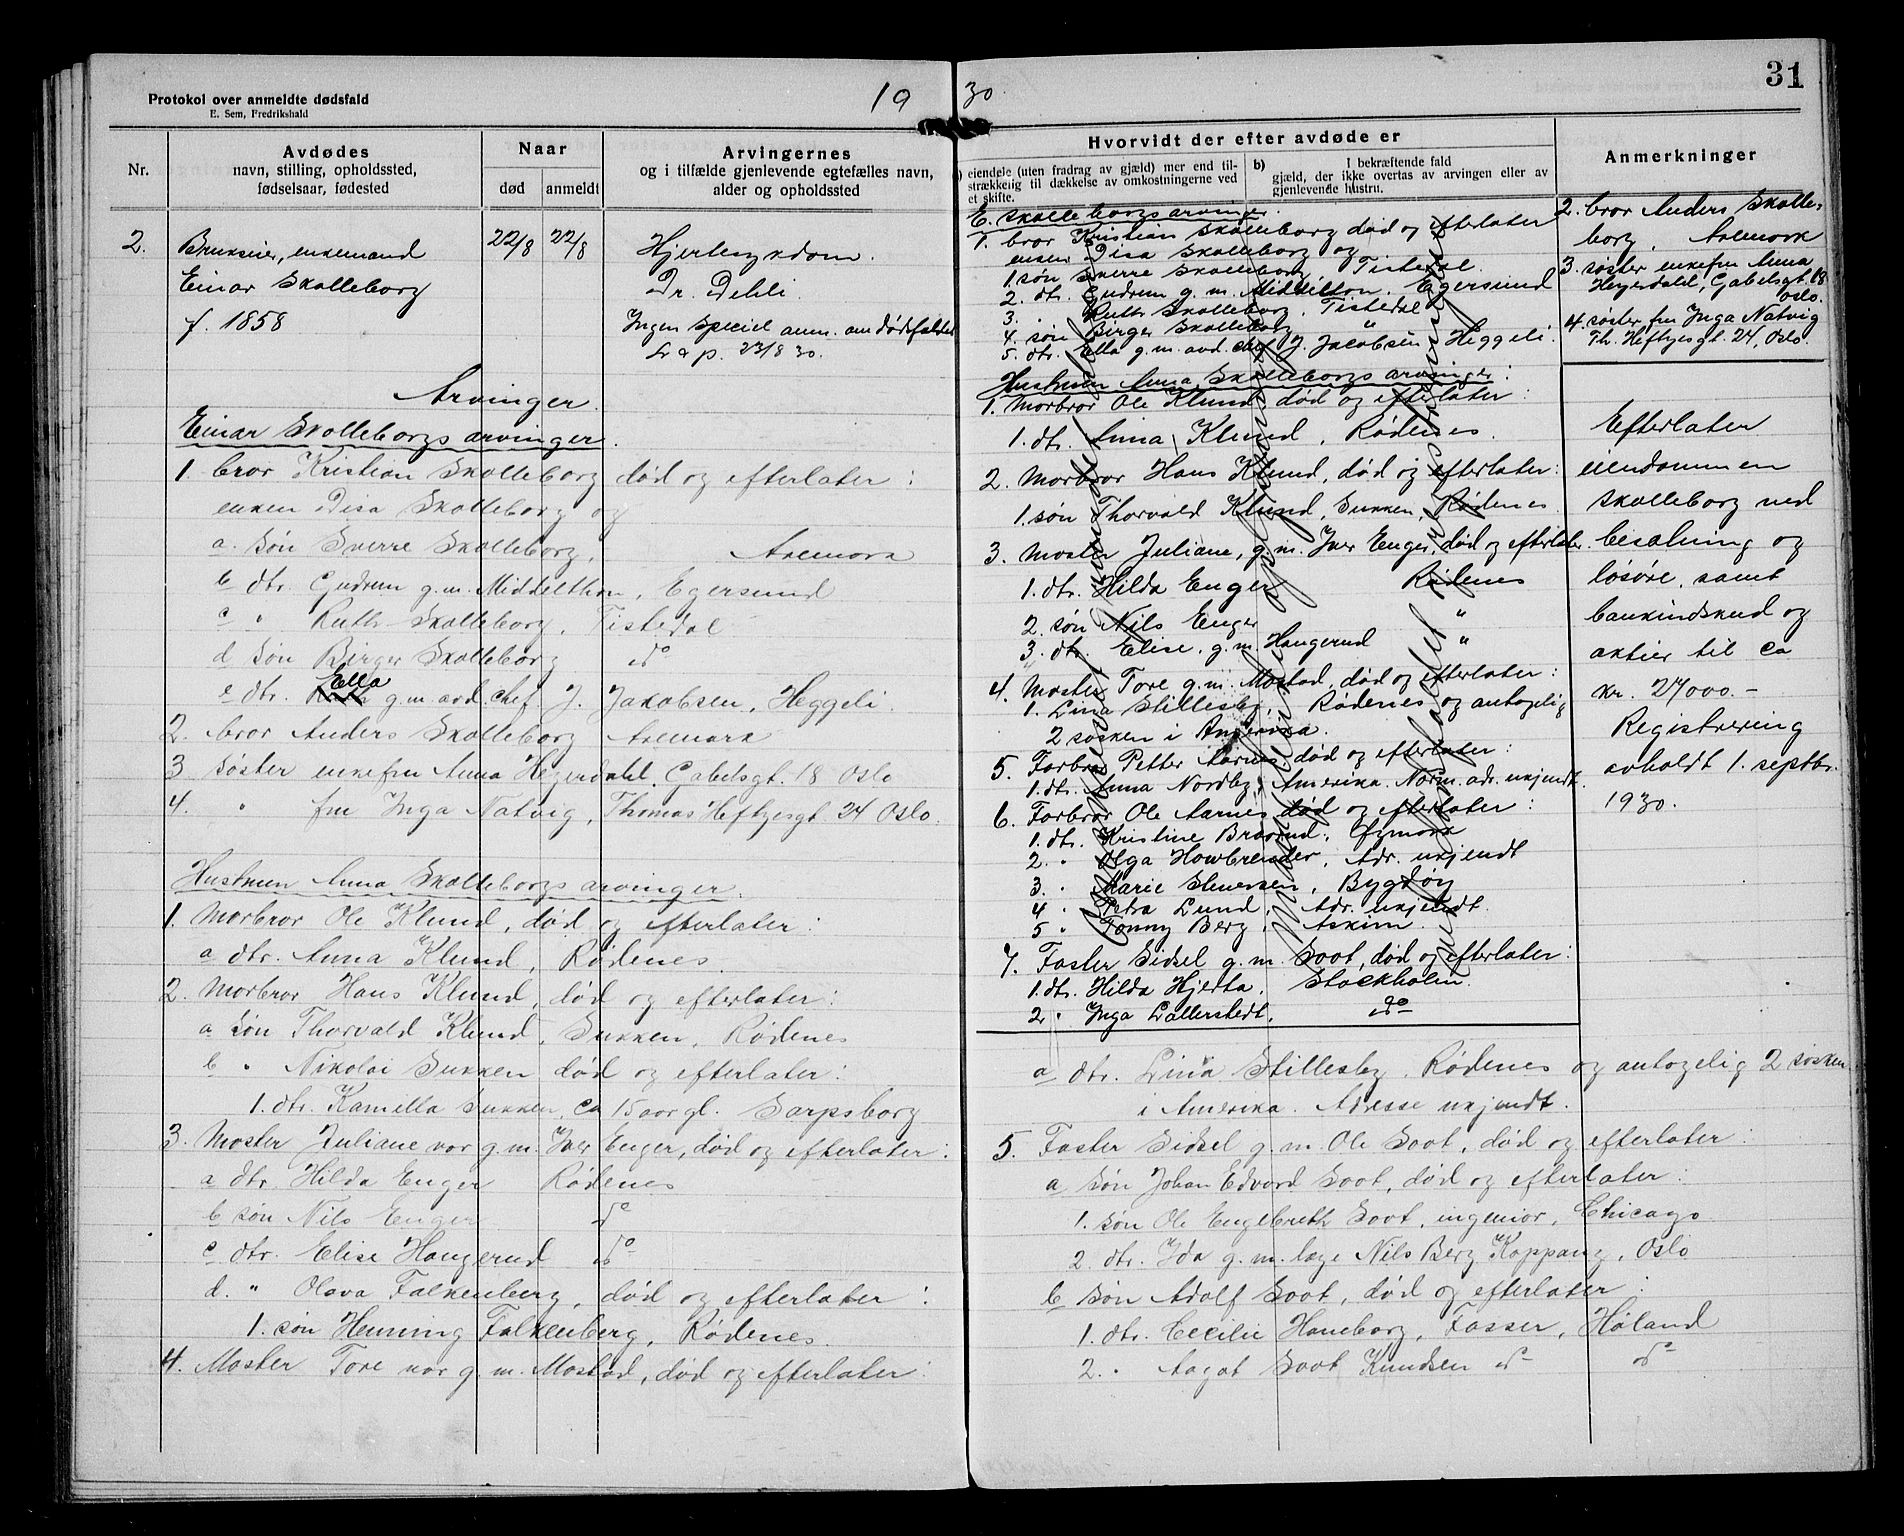 Protokol over anmeldte dødsfald
E. Sem, Fredrikshald
19 30
31
Nr.
Avdødes
navn, stilling, opholdssted,
fødselsaar, fødested
Naar
død
anmeldt
Arvingernes
og i tilfælde gjenlevende egtefælles navn,
alder og opholdssted
2.
Brukseier, enkemand
Einar Skolleborg
f. 1858
22/8
22/8
Hjertesykdom.
Dr. Dehli.
Ingen speciel anm. om dødsfaldet
L & p. 23/8 30.
Arvinger
Einar Skolleborgs arvinger.
1. bror Kristian Skolleborg død og efterlater:
enken Disa Skolleborg og
a. søn Sverre Skolleborg, Aremark
b dtr. Gudrun g.m. Middelthon, Egersund
c " Ruth Skolleborg, Tistedal
d søn Birger Skolleborg do
e dtr. Ella g.m. avd. chef J. Jakobsen, Heggeli.
2. bror Anders Skolleborg Aremark
3 søster enkefru Anna Heyerdahl, Gabelsgt. 18 Oslo
4. " fru Inga Natvig, Thomas Heftyesgt 24 Oslo.
Hustruen Anna Skolleborgs arvinger.
1. Morbror Ole Klund, død og efterlater:
a dtr. Anna Klund, Rødenes.
2. Morbror Hans Klund, død og efterlater:
a søn Thorvald Klund, Sukken, Rødenes
b " Nikolai Sukken død og efterlater:
1. dtr. Kamilla Sukken, ca 15 aar gl. Sarpsborg
3. Moster Juliane var g.m. Iver Enger, død og efterlater:
a dtr. Hilda Enger Rødenes
b søn Nils Enger do
c dtr. Elise Haugerud do
d. " Olava Falkenberg, død og efterlater:
1. søn Henning Falkenberg, Rødenes.
4. Moster Tore var g.m. Mostad, død og efterlater:
Hvorvidt der efter avdøde er
eiendele (uten fradrag av gjæld) mer end til-
strækkelig til dækkelse av omkostningerne ved
et skifte.
b) I bekræftende fald
gjæld, der ikke overtas av arvingen eller av
gjenlevende hustru.
E. Skolleborgs arvinger.
1. bror Kristian Skolleborg død og efterlater
enken Disa Skolleborg og
1. søn Sverre Skolleborg, Tistedal.
2. dtr. Gudrun g.m. Middelton, Egersund
3. " Ruth Skolleborg, Tistedal
4. søn Birger Skolleborg "
5. dtr. Ella g.m. avd. chef J. Jacobsen, Heggeli.
Hustruen Anna Skolleborgs arvinger:
1. Morbror Ole Klund død og efterlater:
1. dtr. Anna Klund, Rødenes.
2. Morbror Hans Klund, død og efterlater:
1. søn Thorvald Klund, Sukken, Rødenes.
3. Moster Juliane, g.m. Iver Enger, død og efterlater.
1. dtr. Hilda Enger Rødenes
2. søn Nils Enger "
3. dtr. Elise, g.m. Haugerud "
4. Moster Tore g.m. Mostad, død og efterlater:
1. Lina Stillesby, Rødenes og antagelig
2 søsken i Amerika.
5. Farbror Petter Aarnes død og efterlater:
1. dtr. Anna Nordby, Amerika. Norm. adr. ukjendt.
6. Farbror Ole Aarnes død og efterlater:
1. dtr. Kristine Braarud, Øymark
2. " Olga Howbrender, Adr. ukjendt
3. " Marie Stenersen, Bygdøy
4 " Petra Lund, Adr. ukjendt.
5 " Fanny Berg, Askim.
7. Faster Sidsel g.m. Soot, død og efterlater:
1. dtr. Hilda Hjerta, Stockholm.
2. " Inga Lallerstedt, do
a dtr. Lina Stillesby, Rødenes og antagelig 2 søsken
i Amerika. Adresse ukjendt.
5. Faster Sidsel g.m. Ole Soot, død og efterlater:
a søn Johan Edvard Soot, død og efterlater:
1. søn Ole Engebreth Soot, ingeniør, Chicago
2. dtr. Ida g.m. læge Nils Berg Koppang, Oslo
b søn Adolf Soot, død og efterlater:
1. dtr. Cecilie Haneborg, Fosser, Høland
2. " Aagot Soot Knudsen do do
Anmerkninger
2. bror Anders Skolle-
borg, Aremark
3. søster enkefru Anna
Heyerdahl, Gabelsgt. 18
Oslo.
4. søster fru Inga Natvig
Th. Heftyesgt. 24, Oslo.
Efterlater
eiendommen
Skolleborg med
besætning og
løsøre, samt
bankindskud og
aktier til ca
kr. 27000.-
Registrering
avholdt 1. septbr.
1930.